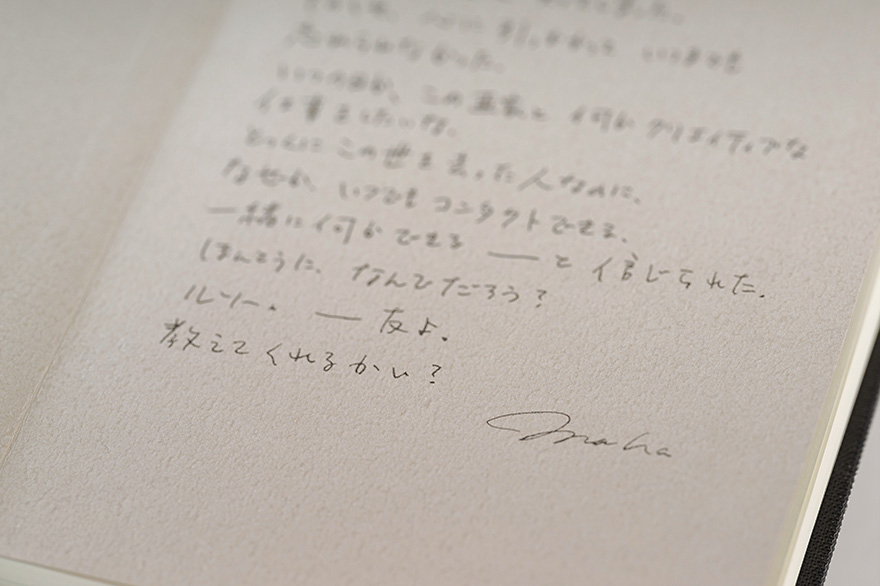 心に引っかかって いつまでも
忘れられなかった。
いつの日か、この画家と 何か クリエイティブな
仕事をしたいな。
とっくにこの世を去った人なのに、
なぜか、いつでもコンタクトできる、
一緒に何かできる ――と信じられた。
ほんとうに、なんでだろう?
ルソー。――友よ。
教えてくれるかい?
Maha